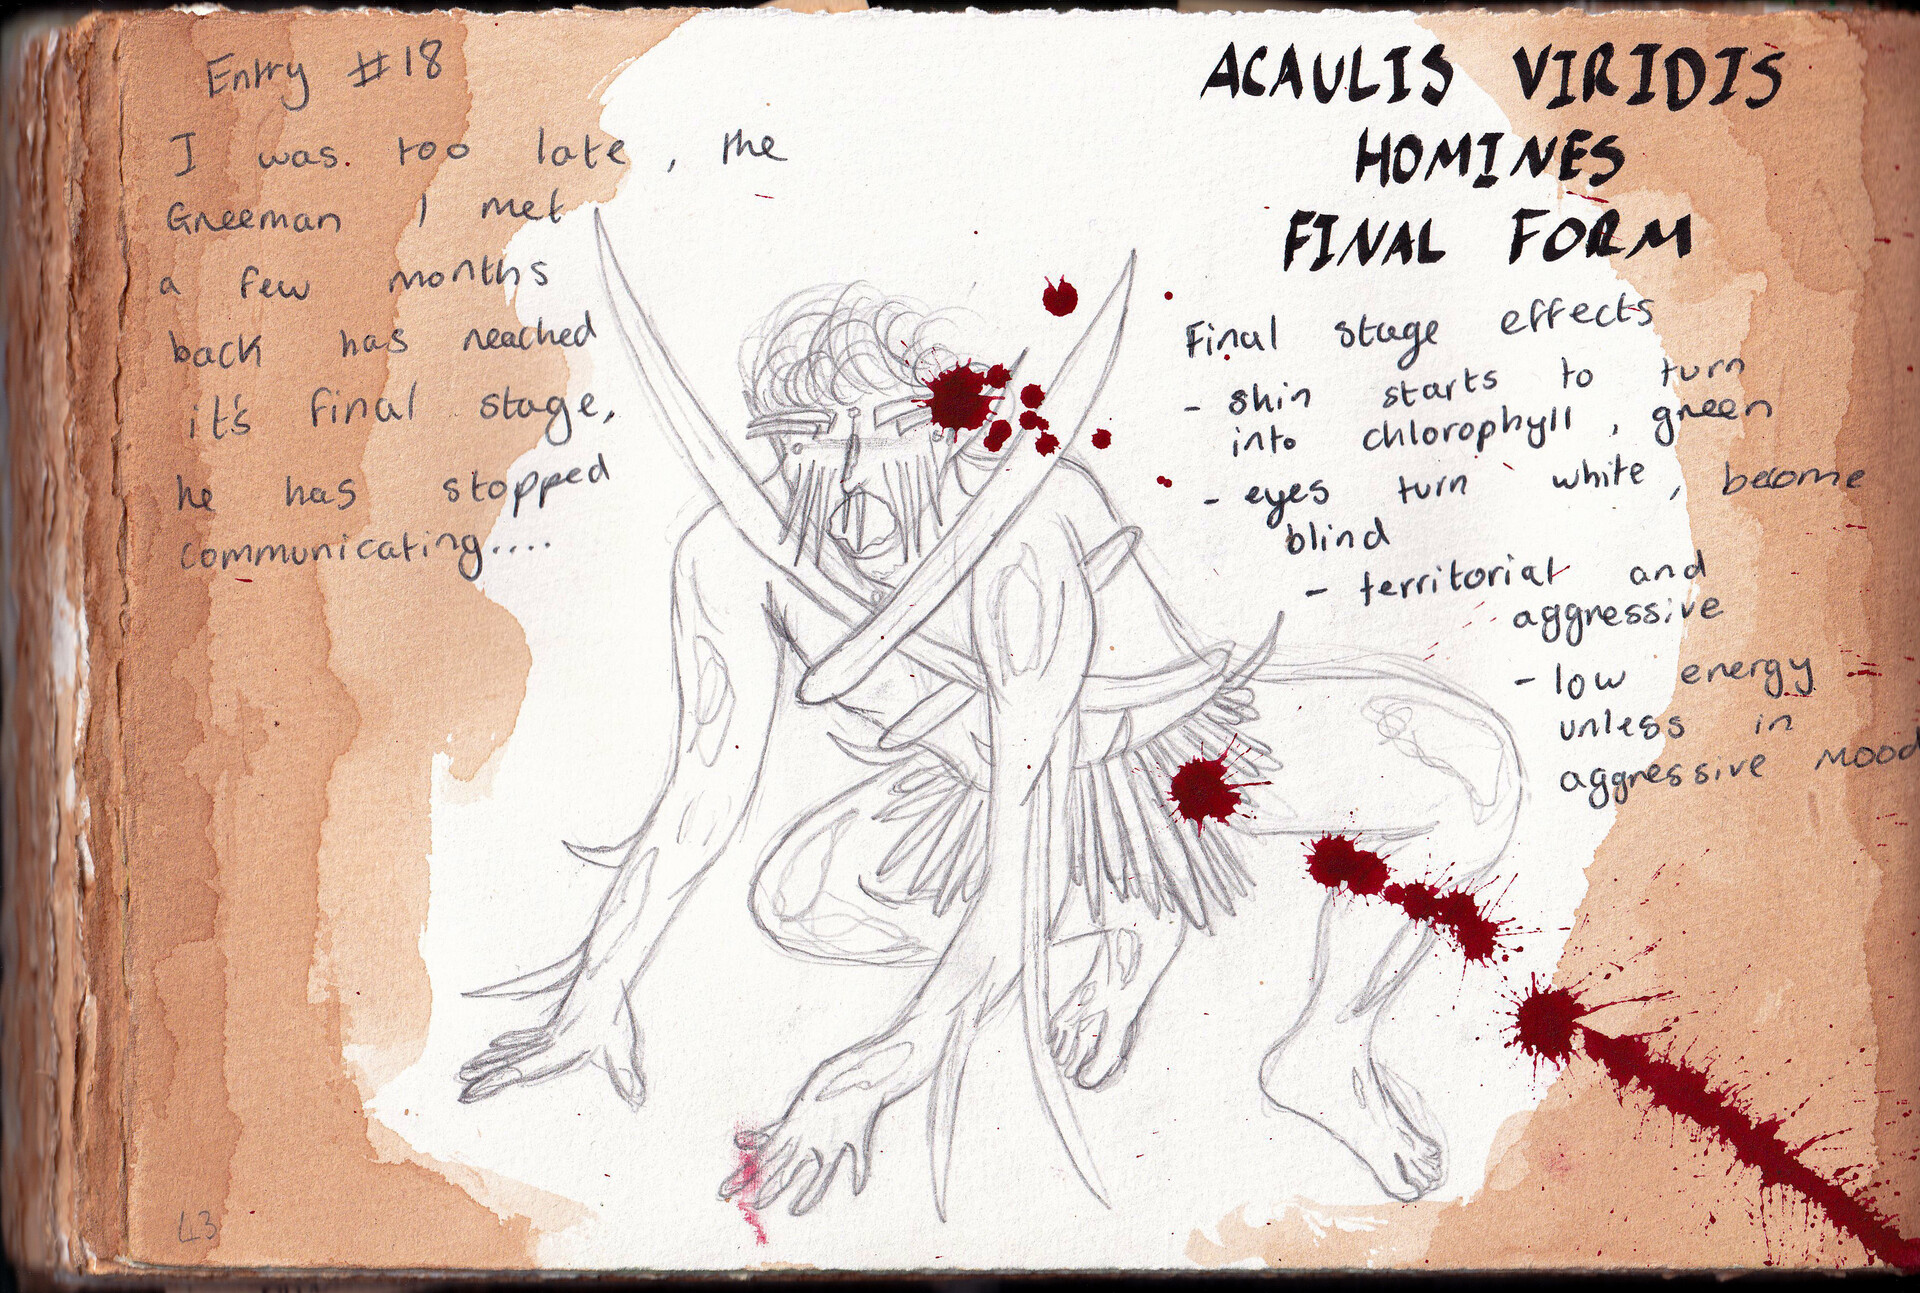 Entry #18
I was too late, the
Greeman I met
a few months
back has reached
it's final stage,
he has stopped
communicating....
ACAULIS VIRIDIS
HOMINES
FINAL FORM
Final stage effects
- skin starts to turn
into chlorophyll, green
- eyes turn white, become
blind
- territorial and
aggressive
- low energy
unless in
aggressive mood
43